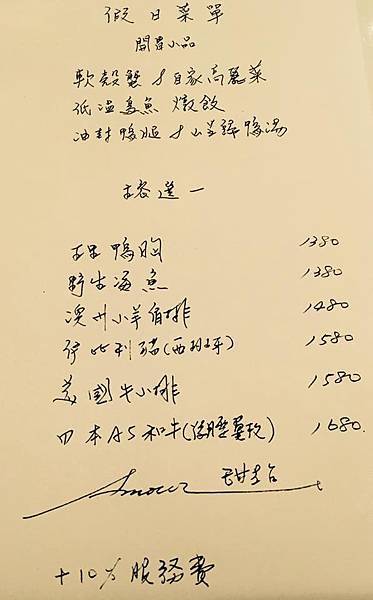 假日菜單
開胃小品
軟殼蟹 & 自家高麗菜
低溫烏魚 燉飯
油封鴨腿 & 山苦瓜鴨湯
擇選一
鴨胸 1380
野生海魚 1380
澳州小羊肩排 1480
伊比利豬(西班牙) 1580
美國牛小排 1580
日本A5和牛( ) 1680.
Amour 甜點
+10% 服務費